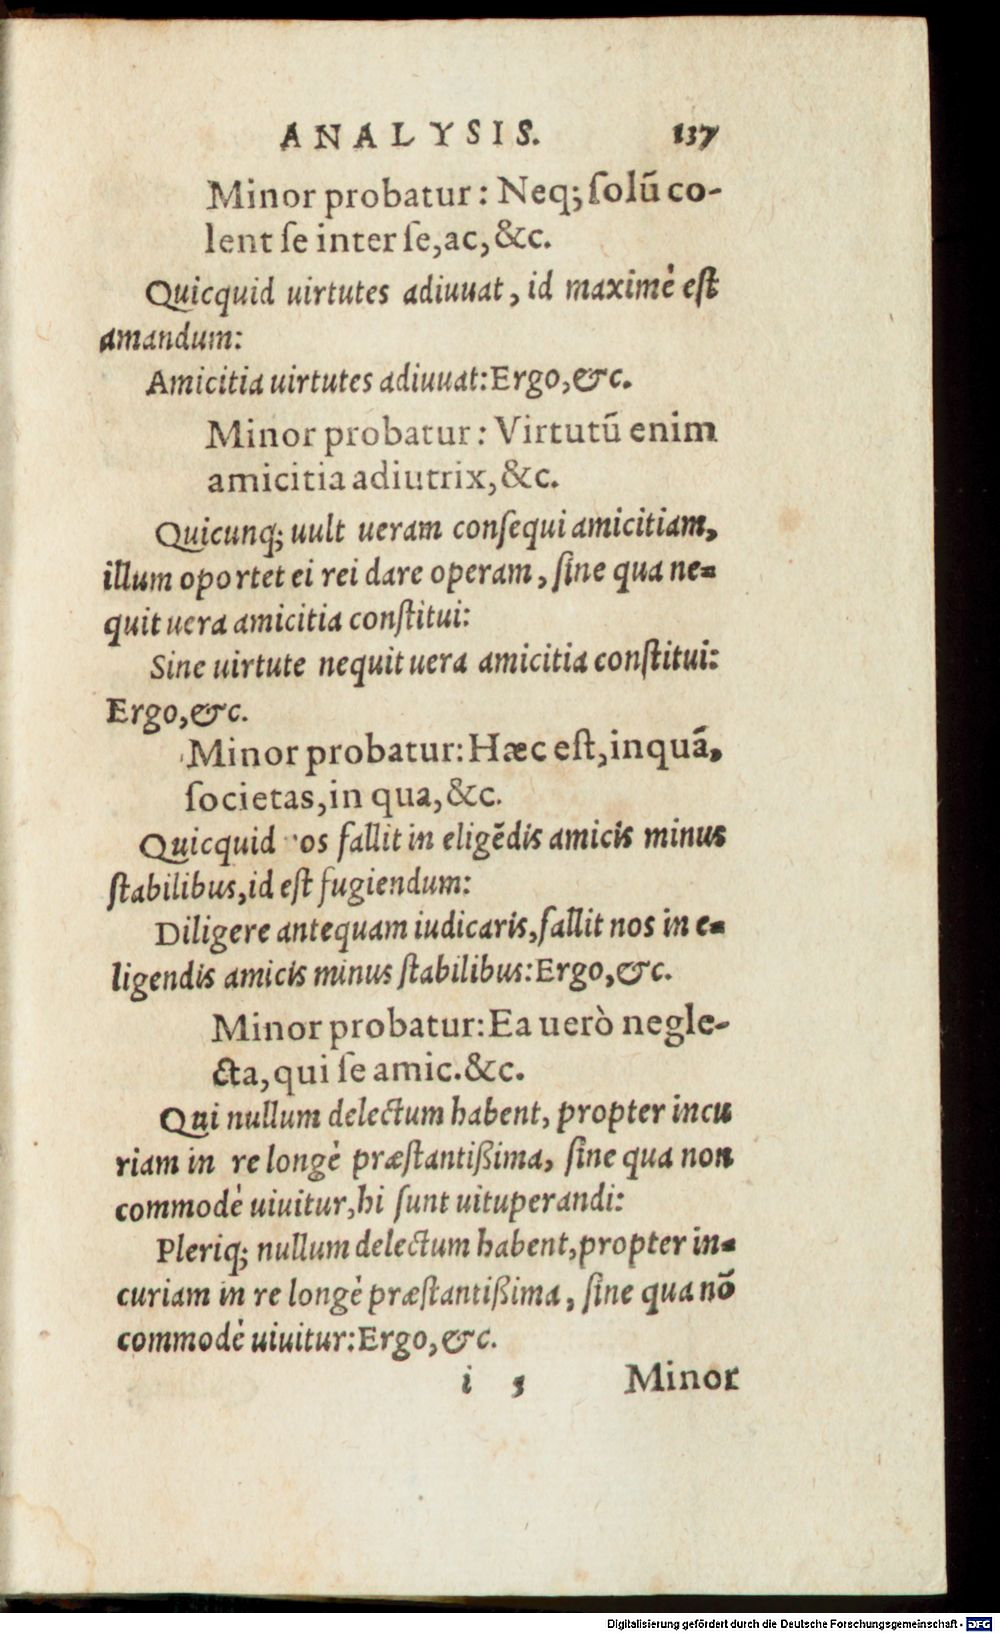 ANALYSIS. 137
Minor probatur: Neq; ſolũ co-
lent ſe inter ſe, ac, &c.
Quicquid uirtutes adiuuat, id maximè eſt
amandum:
Amicitia uirtutes adiuuat: Ergo, &c.
Minor probatur: Virtutũ enim
amicitia adiutrix, &c.
Quicunq; uult ueram conſequi amicitiam,
illum oportet ei rei dare operam, ſine qua ne-
quit uera amicitia conſtitui:
Sine uirtute nequit uera amicitia conſtitui:
Ergo, &c.
Minor probatur: Hæc eſt, inquã,
ſocietas, in qua, &c.
Quicquid os fallit in eligẽdis amicis minus
ſtabilibus, id eſt fugiendum:
Diligere antequam iudicaris, fallit nos in e-
ligendis amicis minus ſtabilibus: Ergo, &c.
Minor probatur: Ea uerò negle-
cta, qui ſe amic. &c.
Qui nullum delectum habent, propter incu
riam in re longè præſtantißima, ſine qua non
commodè uiuitur, hi ſunt uituperandi:
Pleriq; nullum delectum habent, propter in-
curiam in re longè præſtantißima, ſine qua nõ
commodè uiuitur: Ergo, &c.
i 5 Minor
Digitalisierung gefördert durch die Deutsche Forschungsgemeinschaft - DFG